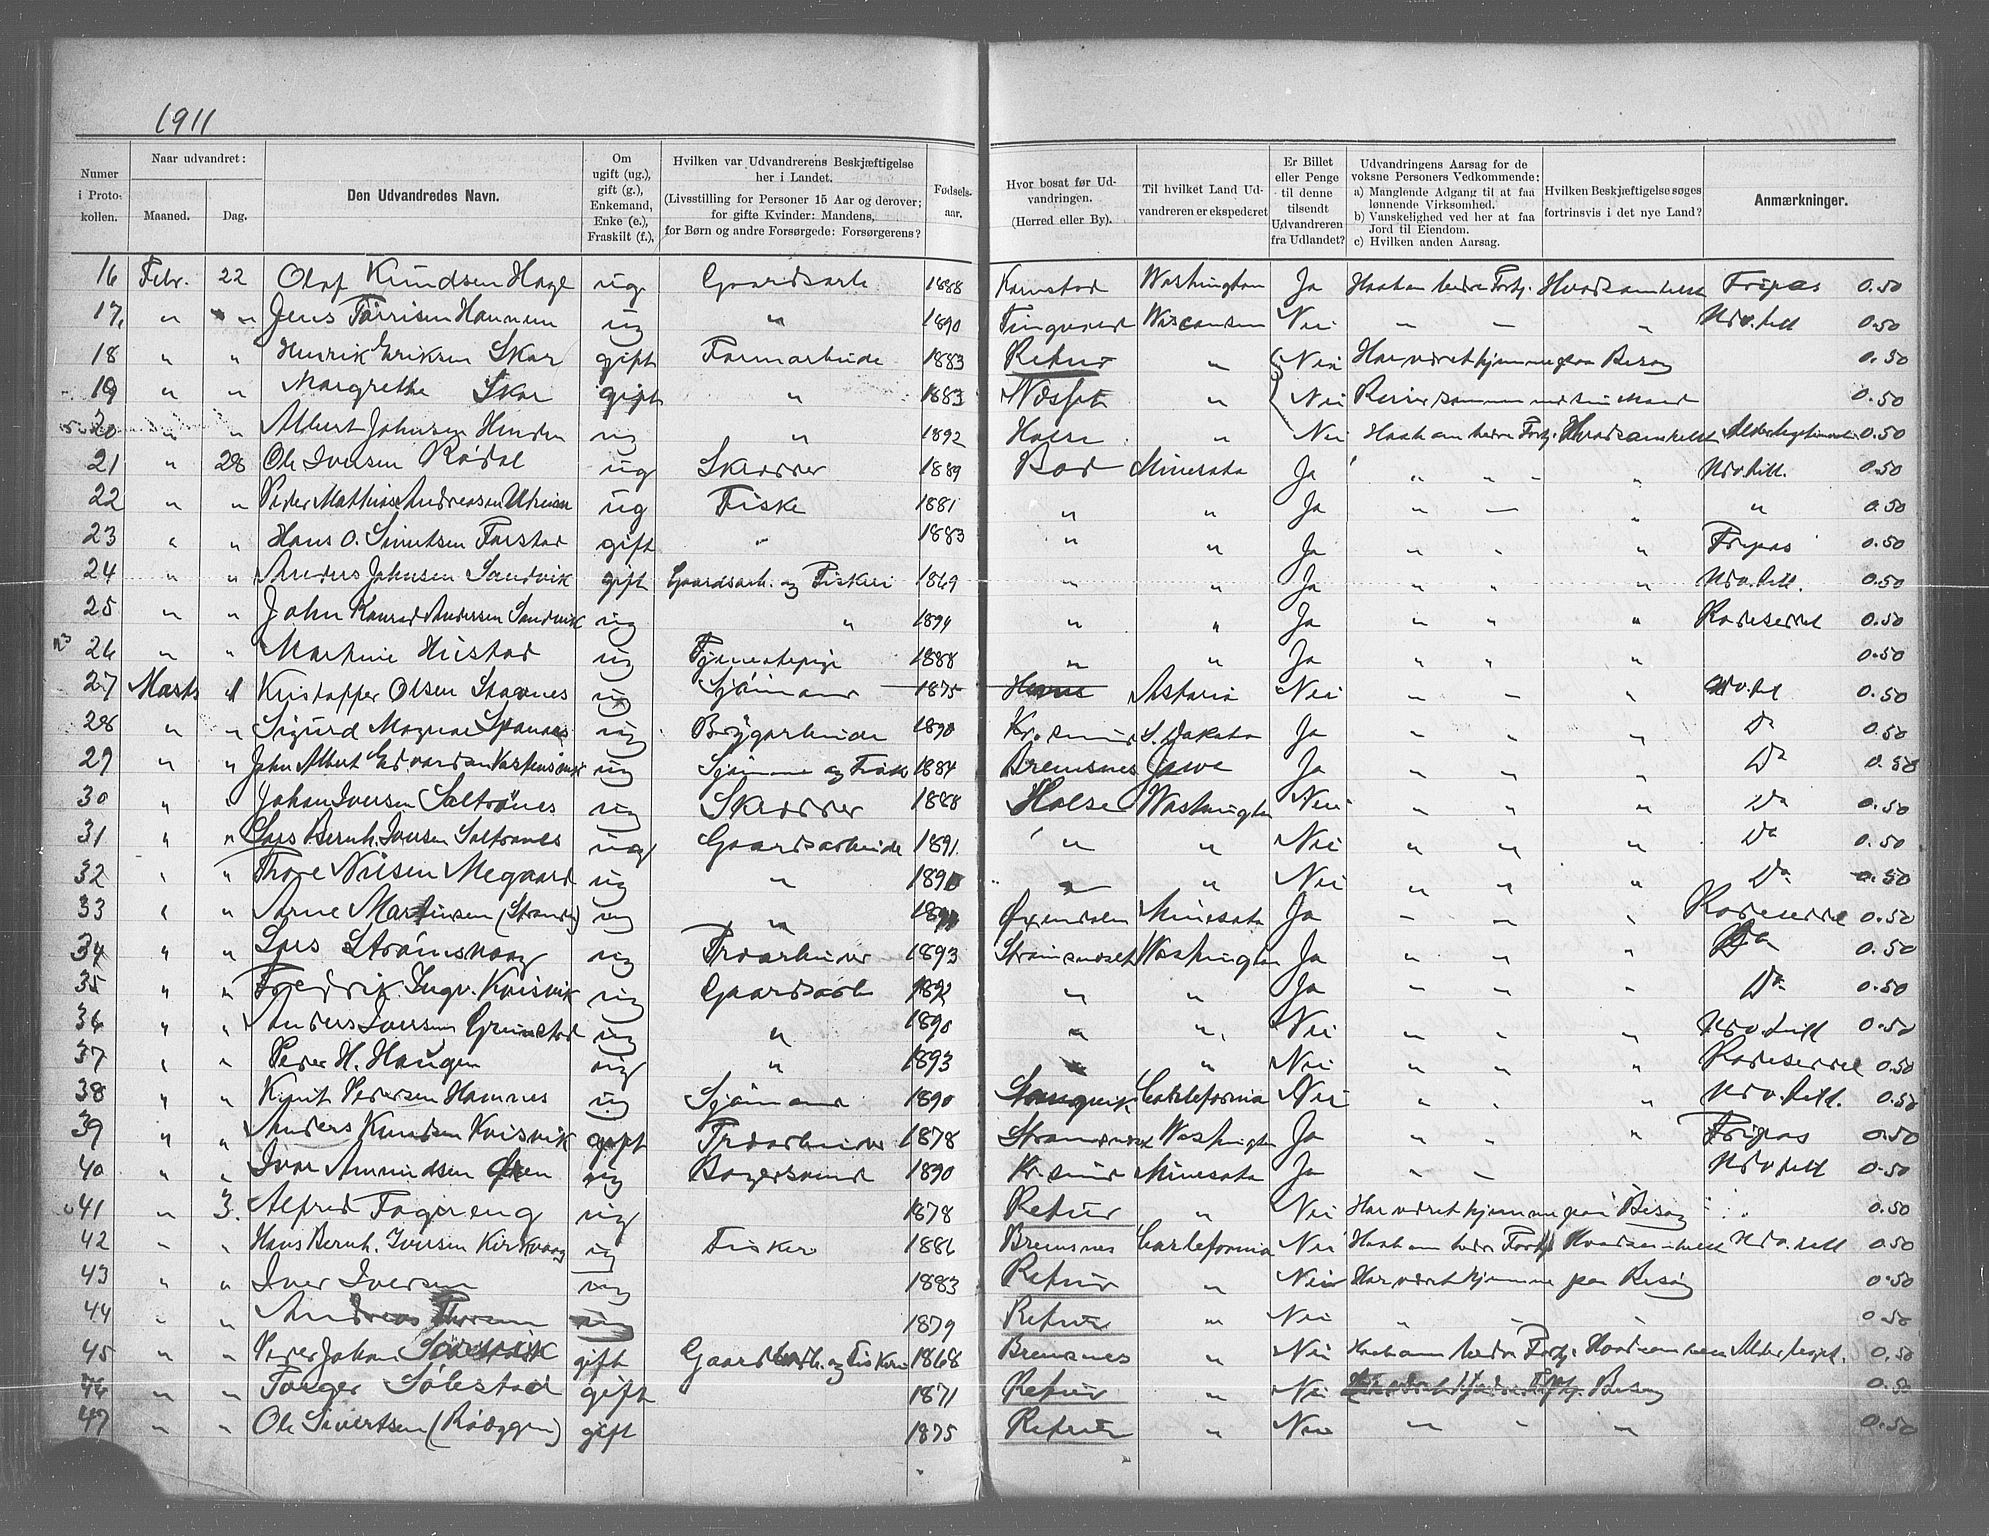 1911
Numer i Protokollen. | Naar udvandret: Maaned. Dag. | Den Udvandredes Navn. | Om ugift (ug.), gift (g.), Enkemand, Enke (e.), Fraskilt (f.), | Hvilken var Udvandrerens Beskjæftigelse her i Landet. (Livsstilling for Personer 15 Aar og derover; for gifte Kvinder: Mandens, for Børn og andre Forsørgede: Forsørgerens? | Fødselsaar. | Hvor bosat før Udvandringen. (Herred eller By). | Til hvilket Land Udvandreren er ekspederet | Er Billet eller Penge til denne tilsendt Udvandreren fra Udlandet? | Udvandringens Aarsag for de voksne Personers Vedkommende: a) Manglende Adgang til at faa lønnende Virksomhed. b) Vanskelighed ved her at faa Jord til Eiendom. c) Hvilken anden Aarsag. | Hvilken Beskjæftigelse søges fortrinsvis i det nye Land? | Anmærkninger.
16 Febr. 22 Olaf Knudsen Hage ug Gaardsarb 1888 Washington Ja Haab om bedre Fortj. Hvadsomhelst Fripas 0.50
17. " " Jens ug " 1890 Tingvold Nei " " " 0.50
18 " " Henrik Eriksen Skar gift Farmarbeide 1883 Retur " Nei Har været hjemme paa Besøg 0.50
19 " " Margrethe Skar gift " 1883 Nesset " Nei Reiser sammen med sin Mand 0.50
20 " " Albert Johnsen ug " 1892 Halse " Nei Haab om bedre Fortj. Hvadsomhelst 0.50
21 " 28 Ole Iversen Rødal ug Skrædder 1889 Bod Minesota Ja " " " 0.50
22 " " Peder Mathias Andreassen ug Fiske 1881 " " Ja " " " " 0.50
23 " " Hans O. Sivertsen Farstad gift " 1883 " " Ja " " " Fripas 0.50
24 " " Anders Johnsen Sandvik gift Gaardsarb. og Fiskeri 1869 " " Ja " " " 0.50
25 " " John Konrad Andersen Sandvik ug " 1894 " " Ja " " " 0.50
26 " " Martine Hustad ug Tjenestepige 1888 " " Ja " " " 0.50
27 Marts 1 Kristoffer Olsen Stavnes ug Sjømand 1875 Astoria Nei " " " 0.50
28 " " Sigurd Magnus ug Bryggearbeide 1890 Kr.sund S. Dakota Ja " " " Do 0.50
29 " " John Albert Edvardsen ug Sjømand og Fisk 1884 Bremsnes Jowa Ja " " " Do 0.50
30 " " Johan Iversen Saltrønes ug Skrædder 1888 Halse Washington Nei " " " Do 0.50
31 " " Lars Bernh. Iversen Saltrønes ug Gaardsarbeide 1891 " " Nei " " " Do 0.50
32 " " Thore Nilsen Megaard ug " " " Nei " " " Do 0.50
33 " " Arne Martinsen (Strand) ug " Øxendalen Minesota Ja " " " 0.50
34 " " Lars Strømsvaag ug 1893 Straumsneset Washington Ja " " " Do 0.50
35 " " Fredrik Ingv. Kvisvik ug Gaardsarb 1892 " " Ja " " " Do 0.50
36 " " Anders Iversen Grimstad ug " 1890 " " Nei " " " 0.50
37 " " Peder H. Haugen ug " 1893 " " Nei " " " 0.50
38 " " Knut Pedersen Hamnes ug Sjømand 1890 Carleifornia Nei " " " 0.50
39 " " Anders Knudsen Kvisvik gift 1878 Washington Ja " " " Fripas 0.50
40 " " Ivar Amundsen ug 1890 Kr.sund Minesota Ja " " 0.50
41 " 3. Alfred Fagereng ug 1878 Retur " Nei Har været hjemme paa Besøg 0.50
42 " " Hans Bernh. Iversen Kirkvaag ug Fisker 1886 Bremsnes Carleifornia Nei Haab om bedre Fortj Hvadsomhelst 0.50
43 " " Iver Iversen ug 1883 Retur " Nei Har været hjemme paa Besøg 0.50
44 " " Andreas ug 1879 Retur " Nei " " " 0.50
45 " " Peder Johan gift Gaardarb. og Fiskeri 1868 Bremsnes " Nei Haab om bedre Fortj. Hvadsomhelst 0.50
46 " " Torger Sølestad gift 1871 Retur " Nei Besøg 0.50
47 " " Ole Sivertsen gift 1875 Retur " Nei " " " 0.50